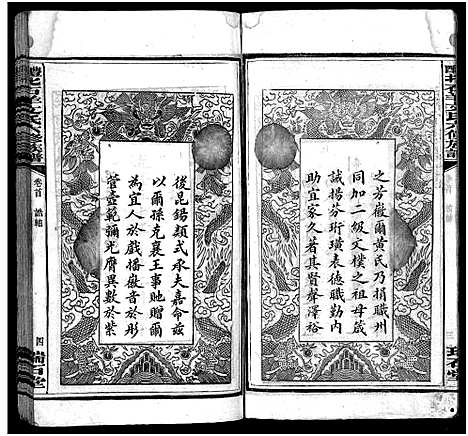 之芳徽爾黃氏乃捐職州
同加二級文樸之祖母箴
誡揚芬珩璜表德職勤內
助宜家久著其賢聲澤裕
後昆錫類式承夫嘉命茲
以爾孫克襄王事貤贈爾
為宜人於戲播徽音於彤
管壼範彌光膺異數於紫
卷首
誥軸
四
三